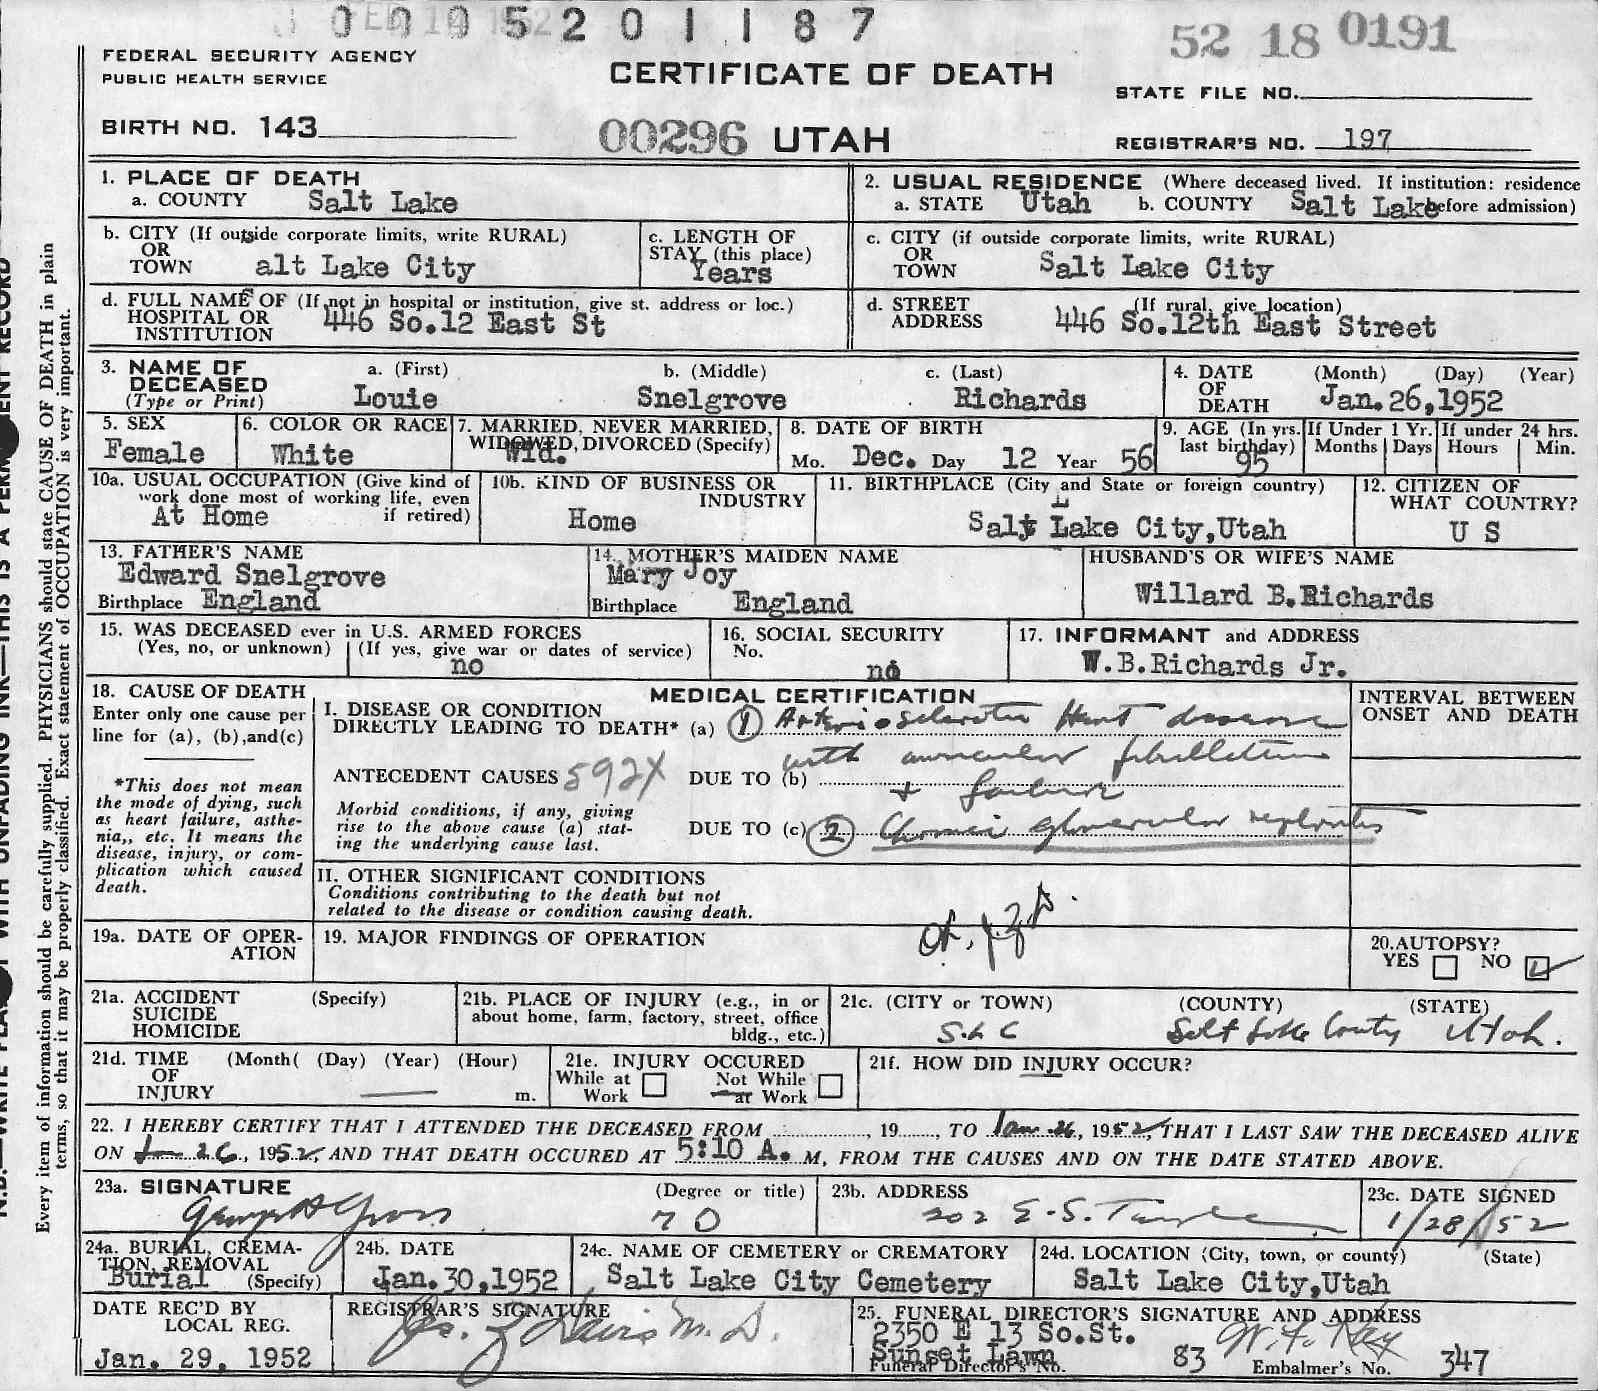 0 0 0 5 2 0 1 1 8 7
52 18 0191
FEDERAL SECURITY AGENCY
PUBLIC HEALTH SERVICE
CERTIFICATE OF DEATH
STATE FILE NO.
BIRTH NO. 143
00296 UTAH
REGISTRAR'S NO. 197
1. PLACE OF DEATH
a. COUNTY Salt Lake
2. USUAL RESIDENCE (Where deceased lived. If institution: residence
a. STATE Utah b. COUNTY Salt Lake before admission)
b. CITY (If outside corporate limits, write RURAL)
OR
TOWN alt Lake City
c. LENGTH OF
STAY (this place)
Years
c. CITY (if outside corporate limits, write RURAL)
OR
TOWN Salt Lake City
d. FULL NAME OF (If not in hospital or institution, give st. address or loc.)
HOSPITAL OR
INSTITUTION 446 So.12 East St
d. STREET (If rural, give location)
ADDRESS 446 So.12th East Street
3. NAME OF
DECEASED
(Type or Print)
a. (First)
Louie
b. (Middle)
Snelgrove
c. (Last)
Richards
4. DATE (Month) (Day) (Year)
OF
DEATH Jan.26,1952
5. SEX
Female
6. COLOR OR RACE
White
7. MARRIED, NEVER MARRIED,
WIDOWED, DIVORCED (Specify)
Wid.
8. DATE OF BIRTH
Mo. Dec. Day 12 Year 56
9. AGE (In yrs.
last birthday)
95
If Under 1 Yr.
Months Days
If under 24 hrs.
Hours Min.
10a. USUAL OCCUPATION (Give kind of
work done most of working life, even
if retired)
At Home
10b. KIND OF BUSINESS OR
INDUSTRY
Home
11. BIRTHPLACE (City and State or foreign country)
Salt Lake City,Utah
12. CITIZEN OF
WHAT COUNTRY?
U S
13. FATHER'S NAME
Edward Snelgrove
Birthplace England
14. MOTHER'S MAIDEN NAME
Mary Joy
Birthplace England
HUSBAND'S OR WIFE'S NAME
Willard B.Richards
15. WAS DECEASED ever in U.S. ARMED FORCES
(Yes, no, or unknown) (If yes, give war or dates of service)
no
16. SOCIAL SECURITY
No.
no
17. INFORMANT and ADDRESS
W.B.Richards Jr.
18. CAUSE OF DEATH
Enter only one cause per
line for (a), (b),and(c)
*This does not mean
the mode of dying, such
as heart failure, asthe-
nia,, etc. It means the
disease, injury, or com-
plication which caused
death.
MEDICAL CERTIFICATION
I. DISEASE OR CONDITION
DIRECTLY LEADING TO DEATH* (a) 1 Arteriosclerotic Heart disease
with auricular fibrillation
ANTECEDENT CAUSES 592X DUE TO (b)
+ failure
Morbid conditions, if any, giving
rise to the above cause (a) stat-
ing the underlying cause last.
DUE TO (c) 2 Chronic glomerular nephritis
INTERVAL BETWEEN
ONSET AND DEATH
II. OTHER SIGNIFICANT CONDITIONS
Conditions contributing to the death but not
related to the disease or condition causing death.
19a. DATE OF OPER-
ATION
19. MAJOR FINDINGS OF OPERATION
20.AUTOPSY?
YES NO
21a. ACCIDENT (Specify)
SUICIDE
HOMICIDE
21b. PLACE OF INJURY (e.g., in or
about home, farm, factory, street, office
bldg., etc.)
21c. (CITY or TOWN) (COUNTY) (STATE)
S.L C Salt Lake County Utah.
21d. TIME (Month( (Day) (Year) (Hour)
OF
INJURY m.
21e. INJURY OCCURED
While at Not While
Work at Work
21f. HOW DID INJURY OCCUR?
22. I HEREBY CERTIFY THAT I ATTENDED THE DECEASED FROM , 19 , TO Jan. 26, 1952, THAT I LAST SAW THE DECEASED ALIVE
ON Jan 26, 1952, AND THAT DEATH OCCURED AT 5:10 A. M, FROM THE CAUSES AND ON THE DATE STATED ABOVE.
23a. SIGNATURE (Degree or title)
23b. ADDRESS
202 E.S.
23c. DATE SIGNED
1/28/52
24a. BURIAL, CREMA-
TION, REMOVAL
Burial (Specify)
24b. DATE
Jan.30,1952
24c. NAME OF CEMETERY or CREMATORY
Salt Lake City Cemetery
24d. LOCATION (City, town, or county) (State)
Salt Lake City,Utah
DATE REC'D BY
LOCAL REG.
Jan. 29, 1952
REGISTRAR'S SIGNATURE
Davis M.D.
25. FUNERAL DIRECTOR'S SIGNATURE AND ADDRESS
2350 E 13 So.St.
Sunset Lawn
Funeral Director's No. 83 Embalmer's No. 347
Every item of information should be carefully supplied. PHYSICIANS should state CAUSE OF DEATH in plain
terms, so that it may be properly classified. Exact statement of OCCUPATION is very important.